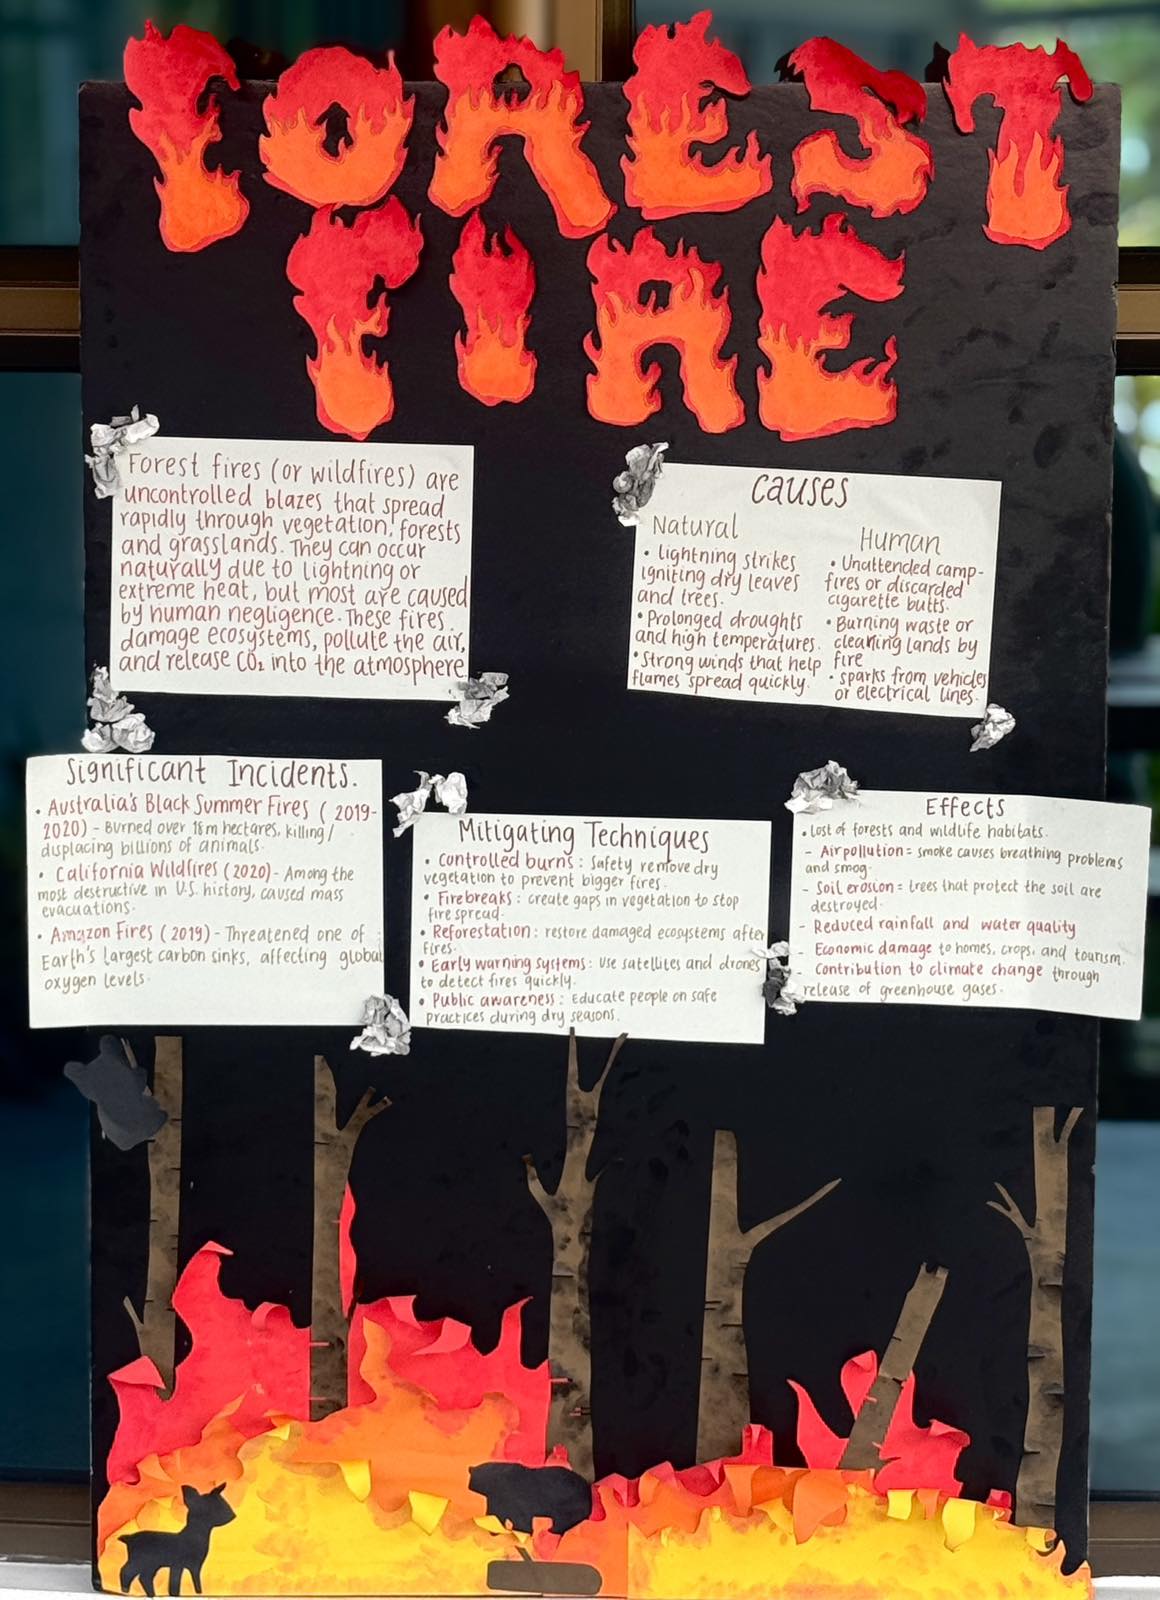 FOREST
FIRE
Forest fires (or wildfires) are
uncontrolled blazes that spread
rapidly through vegetation, forests
and grasslands. They can occur
naturally due to lightning or
extreme heat, but most are caused
by human negligence. These fires
damage ecosystems, pollute the air,
and release CO₂ into the atmosphere
Causes
Natural
• Lightning strikes
igniting dry leaves
and trees.
• Prolonged droughts
and high temperatures.
• Strong winds that help
flames spread quickly.
Human
• Unattended camp-
fires or discarded
cigarette butts.
• Burning waste or
clearing lands by
fire
• sparks from vehicles
or electrical lines.
Significant Incidents.
• Australia's Black Summer Fires (2019-
2020) - Burned over 18m hectares, killing/
displacing billions of animals.
• California Wildfires (2020) - Among the
most destructive in U.S. history, caused mass
evacuations.
• Amazon Fires (2019) - Threatened one of
Earth's largest carbon sinks, affecting global
oxygen levels.
Mitigating Techniques
• Controlled burns: Safety remove dry
vegetation to prevent bigger fires.
• Firebreaks: create gaps in vegetation to stop
fire spread.
• Reforestation: restore damaged ecosystems after
fires.
• Early warning systems: Use satellites and drones
to detect fires quickly.
• Public awareness: Educate people on safe
practices during dry seasons.
Effects
• Lost of forests and wildlife habitats.
- Air pollution = smoke causes breathing problems
and smog.
- Soil erosion = trees that protect the soil are
destroyed.
- Reduced rainfall and water quality
- Economic damage to homes, crops, and tourism.
- Contribution to climate change through
release of greenhouse gases.